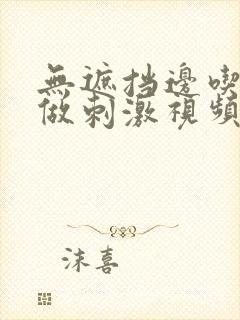 無遮挡邊喫
做刺激視頻
沫喜